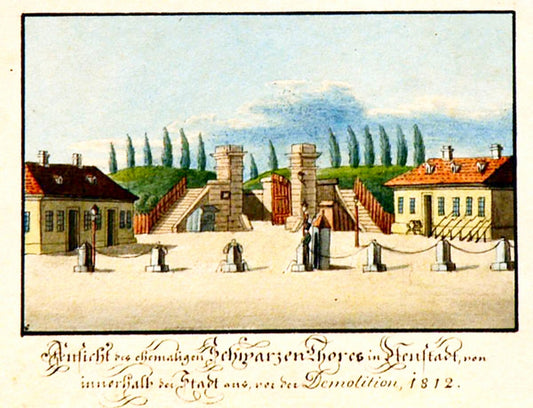 Ansicht des ehemaligen Schwarzen Thores in Neustadt, von
innerhalb der Stadt aus, vor der Demolition, 1812.